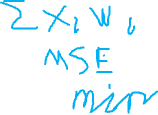 Σ xᵢ wᵢ
MSE
min